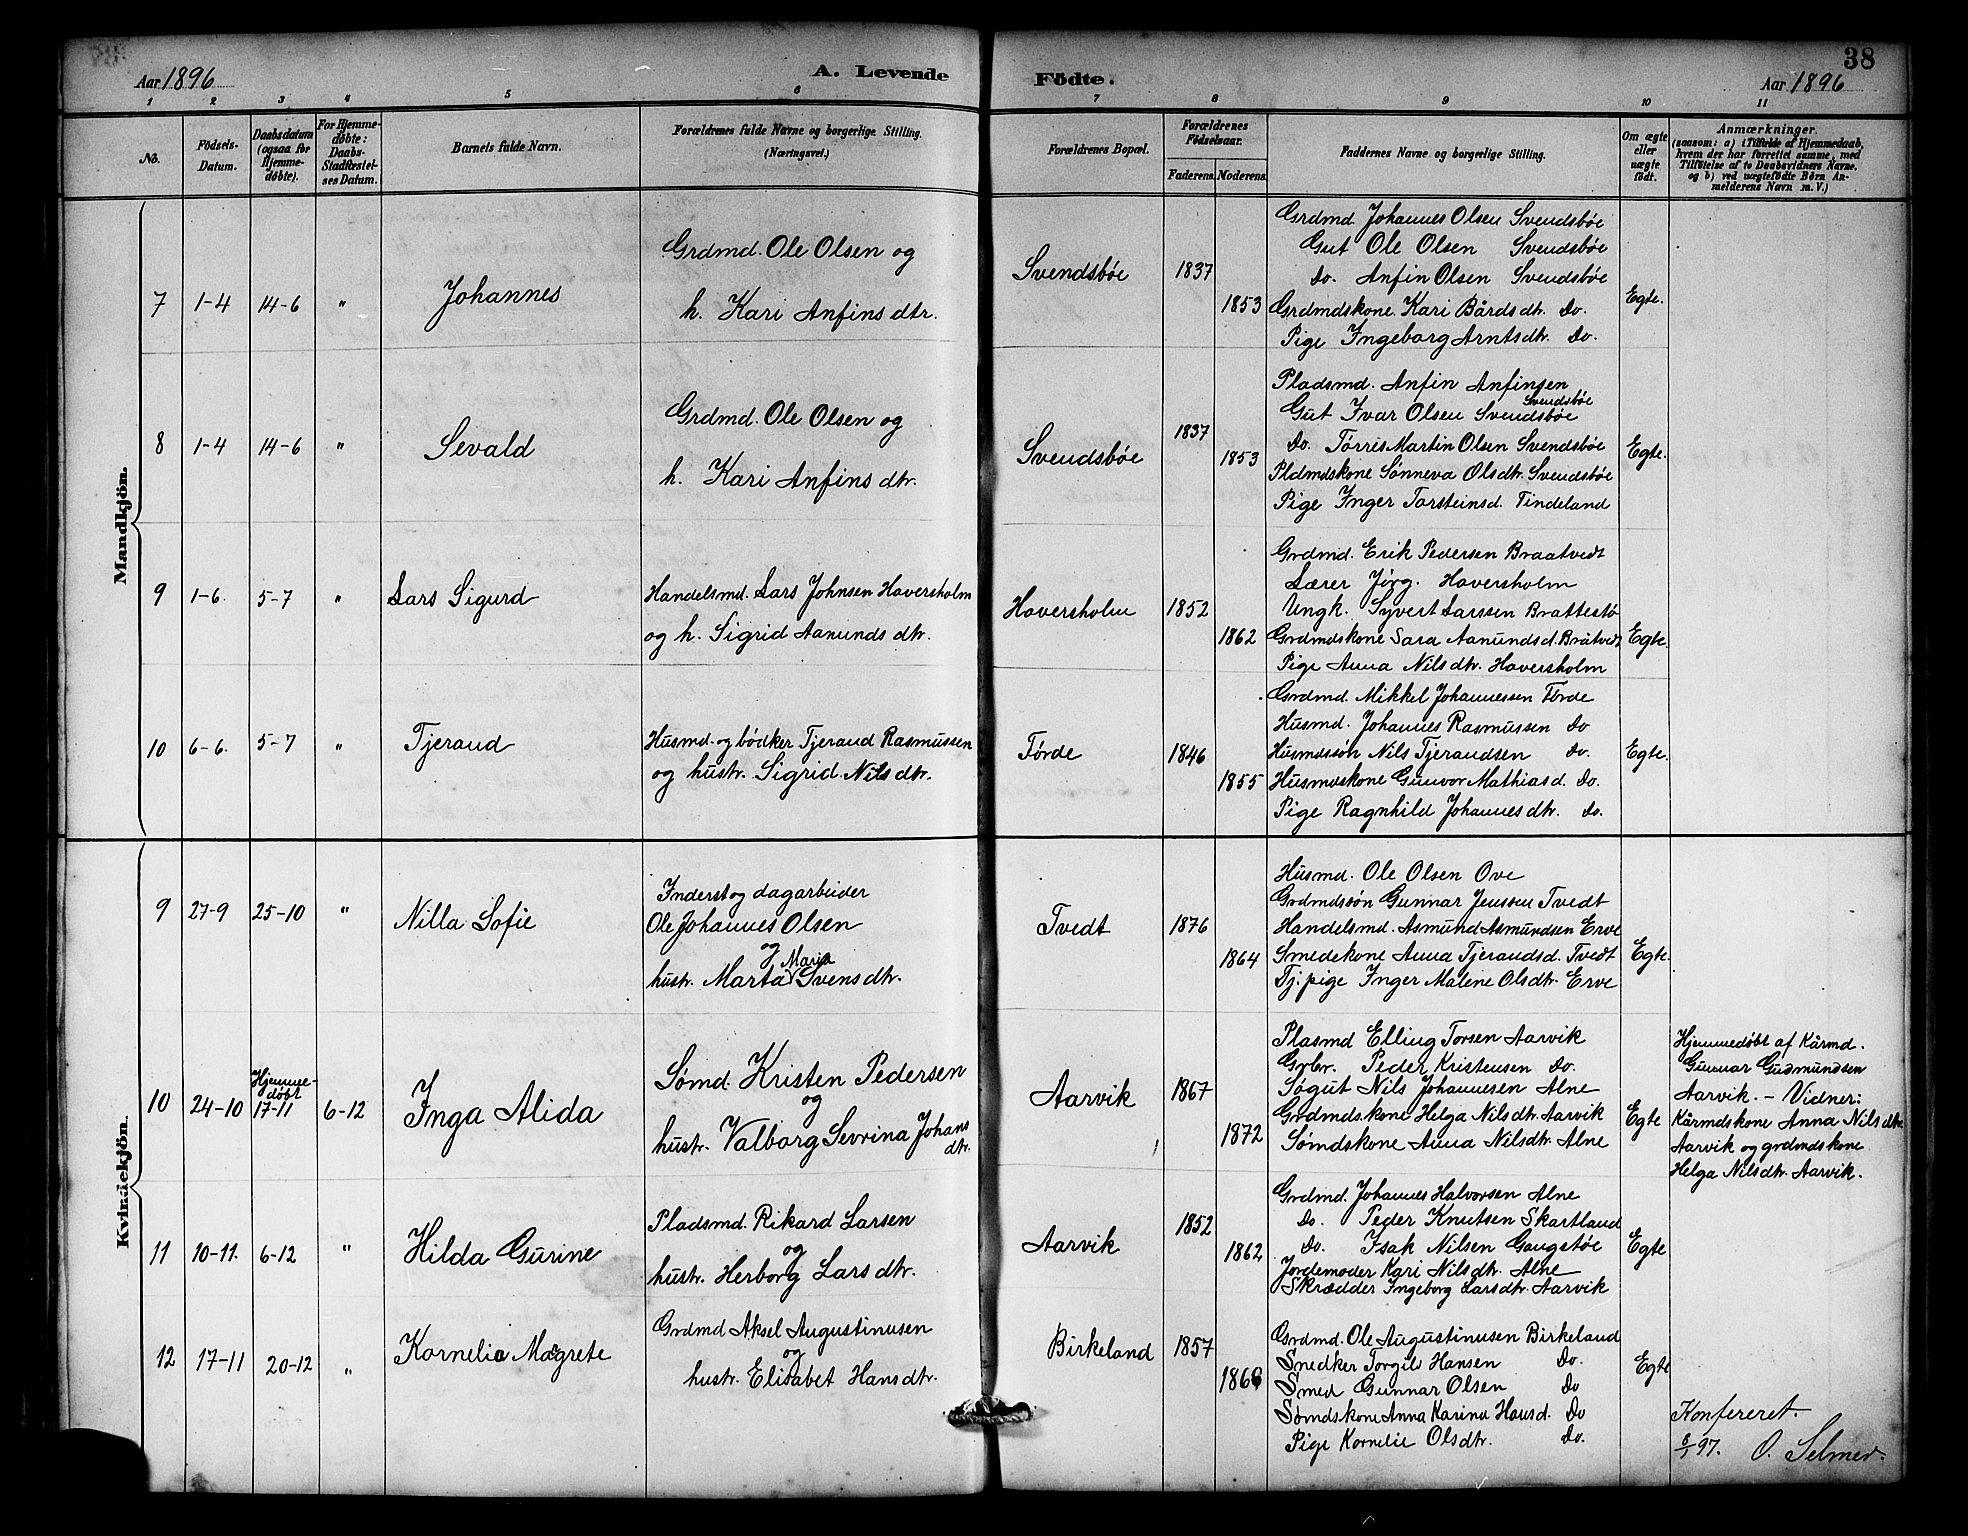 38
Aar 1896
A. Levende Födte.
Aar 1896
1 2 3 4 5 6 7 8 9 10 11
No.
Födsels-Datum.
Daabsdatum (ogsaa for Hjemme-døbte).
For Hjemme-døbte: Daabs-Stadfæstel-ses Datum.
Barnets fulde Navn.
Forældrenes fulde Navne og borgerlige Stilling.
(Næringsvei.)
Forældrenes Bopæl.
Forældrenes Födselsaar.
Faderens. Moderens.
Faddernes Navne og borgerlige Stilling.
Om ægte eller uægte født.
Anmærkninger.
(saasom: a) i Tilfælde af Hjemmedaab,
hvem der har forrettet samme, med
Tilföielse af to Daabsvidners Navne,
og b) ved uægtefödte Börn An-
melderens Navn m. V.)
Mandkjön.
7 1-4 14-6 " Johannes
Grdmd. Ole Olsen og
h. Kari Anfinsdtr.
Svendsbøe 1837 1853
Grdmd. Johannes Olsen Svendsbøe
Gut Ole Olsen Svendsbøe
Do. Anfin Olsen Svendsbøe
Grdmdskone Kari Bårdsdt. Do.
Pige Ingeborg Arntsdtr. Do.
Egte.
8 1-4 14-6 " Sevald
Grdmd. Ole Olsen og
h. Kari Anfinsdtr.
Svendsbøe 1837 1853
Pladsmd. Anfin Anfinsen
Svendsbøe
Gut Ivar Olsen Svendsbøe
Do. Tørris Martin Olsen Svendsbøe
Pldmdskone Sønneva Olsdtr. Svendsbøe
Pige Inger Torsteinsd. Tindeland
Egte.
9 1-6. 5-7 " Lars Sigurd
Handelsmd. Lars Johnsen Haversholm
og h. Sigrid Aanundsdtr.
Haversholm 1852 1862
Grdmd. Erik Pedersen Braatvedt
Lærer Jørg. Haversholm
Ungk. Syvert Larssen Brattestø
Grdmdskone Sara Aanundsd. Bråtvedt
Pige Anna Nilsdtr. Haversholm
Egte.
10 6-6. 5-7 " Tjerand
Husmd. og bødker Tjerand Rasmussen
og hustr. Sigrid Nilsdtr.
Førde 1846 1855
Grdmd. Mikkel Johannessen Førde
Husmd. Johannes Rasmussen Do
Husmdssøn Nils Tjerandsen Do.
Husmdskone Gunvor Mathiasd. Do.
Pige Ragnhild Johannesdtr. Do.
Egte.
Kvindekjön.
9 27-9 25-10 " Nilla Sofie
Inderst og dagarbeider
Ole Johannes Olsen
og
Maria
hustr. Marta Svensdtr.
Tvedt 1876 1864
Husmd. Ole Olsen Ove
Grdmdssøn Gunnar Jenssen Tvedt
Handelsmd. Asmund Asmundsen Erve
Smedekone Anna Tjerandsd. Tvedt
Tj.pige Inger Malene Olsdtr. Erve
Egte.
10 24-10 Hjemme-døbt 17-11 6-12 Inga Alida
Sømd. Kristen Pedersen
og
hustr. Valborg Sevrina Johansdtr.
Aarvik 1867 1872
Plasmd Elling Torsen Aarvik
Grbr. Peder Kristensen Do.
Søgut Nils Johannesen Alne
Grdmdskone Helga Nilsdtr. Aarvik
Sømdskone Anna Nilsdtr. Alne
Egte
Hjemmedøbt af Kårmd.
Gunnar Gudmundsen
Aarvik. – Vidner:
Kårmdskone Anna Nilsdtr.
Aarvik og grdmdskone
Helga Nilsdtr. Aarvik.
11 10-11. 6-12 " Hilda Gurine
Pladsmd. Rikard Larsen
og
hustr. Herborg Larsdtr.
Aarvik 1852 1862
Grdmd. Johannes Halvorsen Alne
Do. Peder Knutsen Skartland
Do. Isak Nilsen Gaugstøe
Jordemoder Kari Nilsdtr. Alne
Skrædder Ingeborg Larsdtr. Aarvik
Egte
12 17-11 20-12 " Kornelia Magrete
Grdmd Aksel Augustinusen
og
hustr. Elisabet Hansdtr.
Birkeland 1857
Grdmd. Ole Augustinusen Birkeland
Snedker Torgils Hansen Do.
Smed Gunnar Olsen Do
Sømdskone Anna Karina Hansd. Do
Pige Kornelie Olsdtr. Do.
Egte
Konfereret.
8/1 97. O. Selmer.